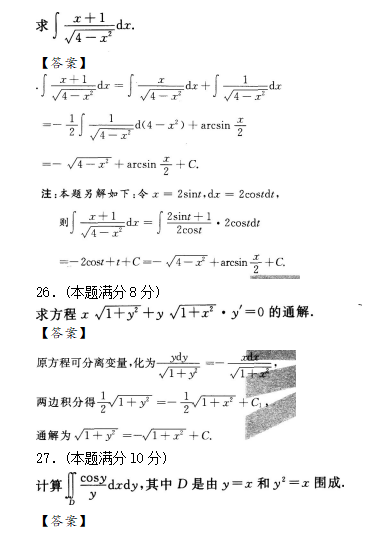 求∫ (x+1)/√(4−x²) dx.
【答案】
.∫ (x+1)/√(4−x²) dx = ∫ x/√(4−x²) dx + ∫ 1/√(4−x²) dx
=− 1/2 ∫ 1/√(4−x²) d(4−x²) + arcsin x/2
=− √(4−x²) + arcsin x/2 + C.
注:本题另解如下:令 x = 2sint,dx = 2costdt,
则∫ (x+1)/√(4−x²) dx = ∫ (2sint+1)/2cost • 2costdt
=−2cost+t+C =− √(4−x²) + arcsin x/2 + C.
26.(本题满分8分)
求方程 x √(1+y²) + y √(1+x²) • y′=0 的通解.
【答案】
原方程可分离变量,化为 ydy/√(1+y²) =− xdx/√(1+x²),
两边积分得 1/2 √(1+y²) =− 1/2 √(1+x²) + C₁,
通解为 √(1+y²) =−√(1+x²) + C.
27.(本题满分10分)
计算∬_D cosy/y dxdy,其中 D 是由 y=x 和 y²=x 围成.
【答案】